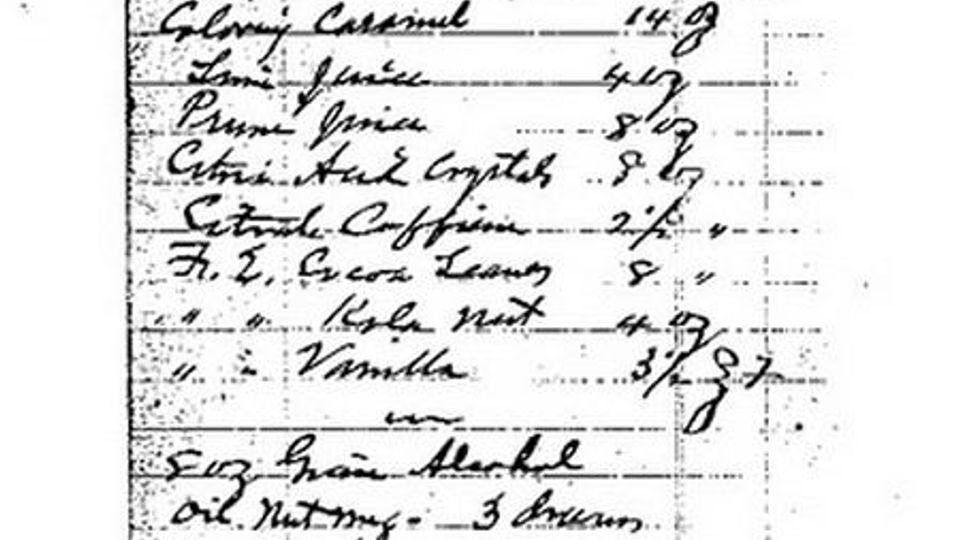 Coloring Caramel 14 oz
Lime Juice 4 oz
Prune Juice 8 oz
Citric Acid Crystals 8 oz
Citrate Caffiene 2 1/2 "
F. E. Cocoa Leaves 8 "
" " Kola Nut 4 oz
" " Vanilla 3 1/2
8 oz Grain Alcohol
Oil Nutmeg - 3 drams